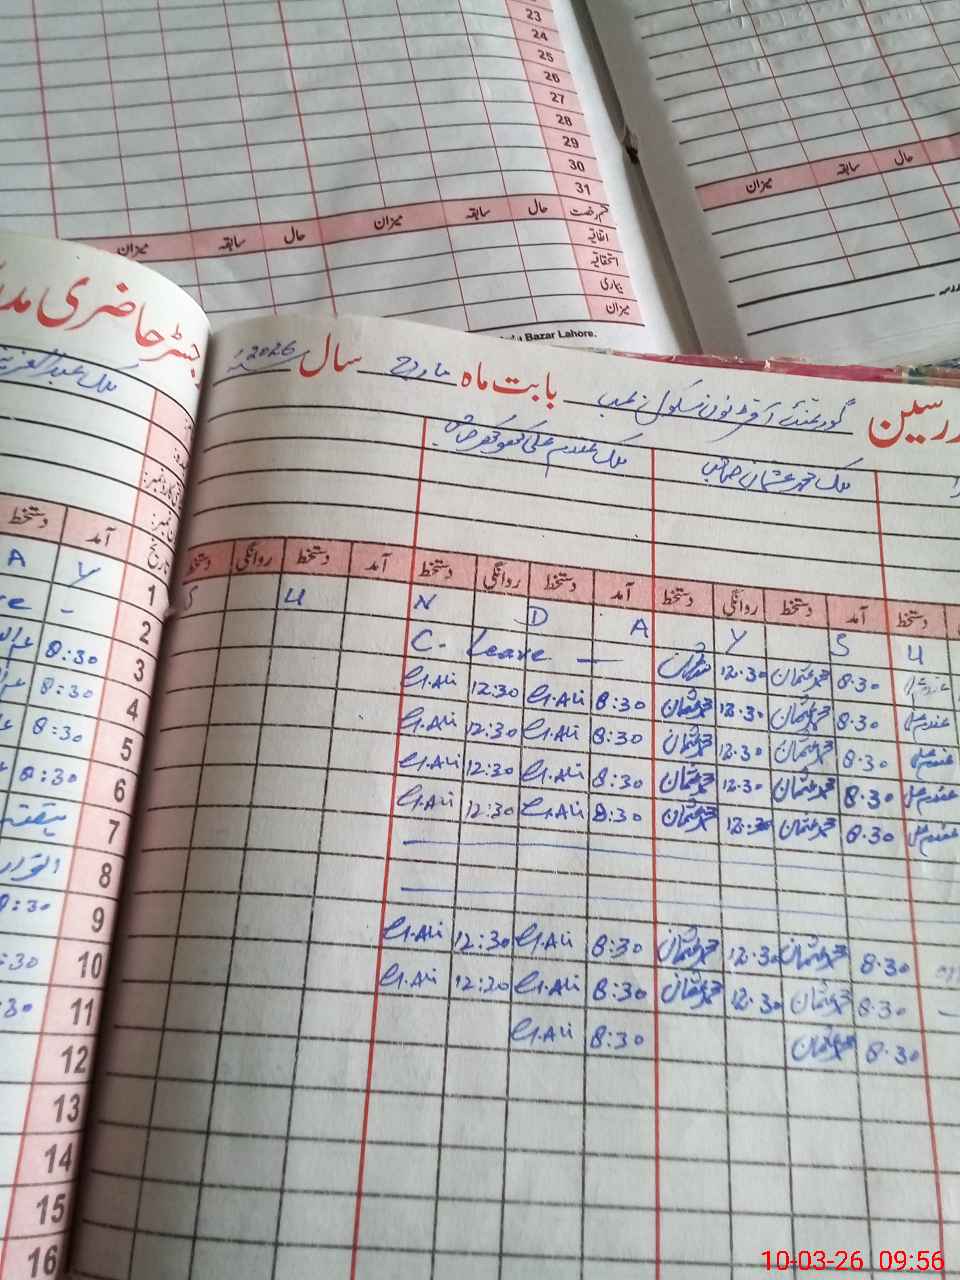 23
24
25
26
27
28
29
30
31
میزان سابقہ حال میزان سابقہ حال قسم رخصت
اتفاقیہ
استحقاقیہ
بیماری
میزان
Bazar Lahore.
میزان سابقہ حال
رجسٹر حاضری
مدرسین گورنمنٹ سکول بابت ماہ مارچ سال 2026ء
ملک محمد عثمان صاحب
دستخط آمد تاریخ
دستخط آمد دستخط روانگی دستخط آمد دستخط روانگی دستخط آمد دستخط روانگی دستخط
A Y 1 S U N D A Y S U
2 C. Leave — 12.30 محمد عثمان 8.30
8:30 3 G.Ali 12:30 G.Ali 8:30 محمد عثمان 12.30 محمد عثمان 8.30
8:30 4 G.Ali 12:30 G.Ali 8:30 محمد عثمان 12.30 محمد عثمان 8.30
8:30 5 G.Ali 12:30 G.Ali 8:30 محمد عثمان 12.30 محمد عثمان 8.30
8:30 6 G.Ali 12:30 G.Ali 8:30 محمد عثمان 12.30 محمد عثمان 8.30
ہفتہ 7
اتوار 8
8:30 9 G.Ali 12:30 G.Ali 8:30 محمد عثمان 12.30 محمد عثمان 8.30
:30 10 G.Ali 12:30 G.Ali 8:30 محمد عثمان 12.30 محمد عثمان 8.30
:30 11 G.Ali 8:30 محمد عثمان 8.30
12
13
14
15
16
10-03-26 09:56